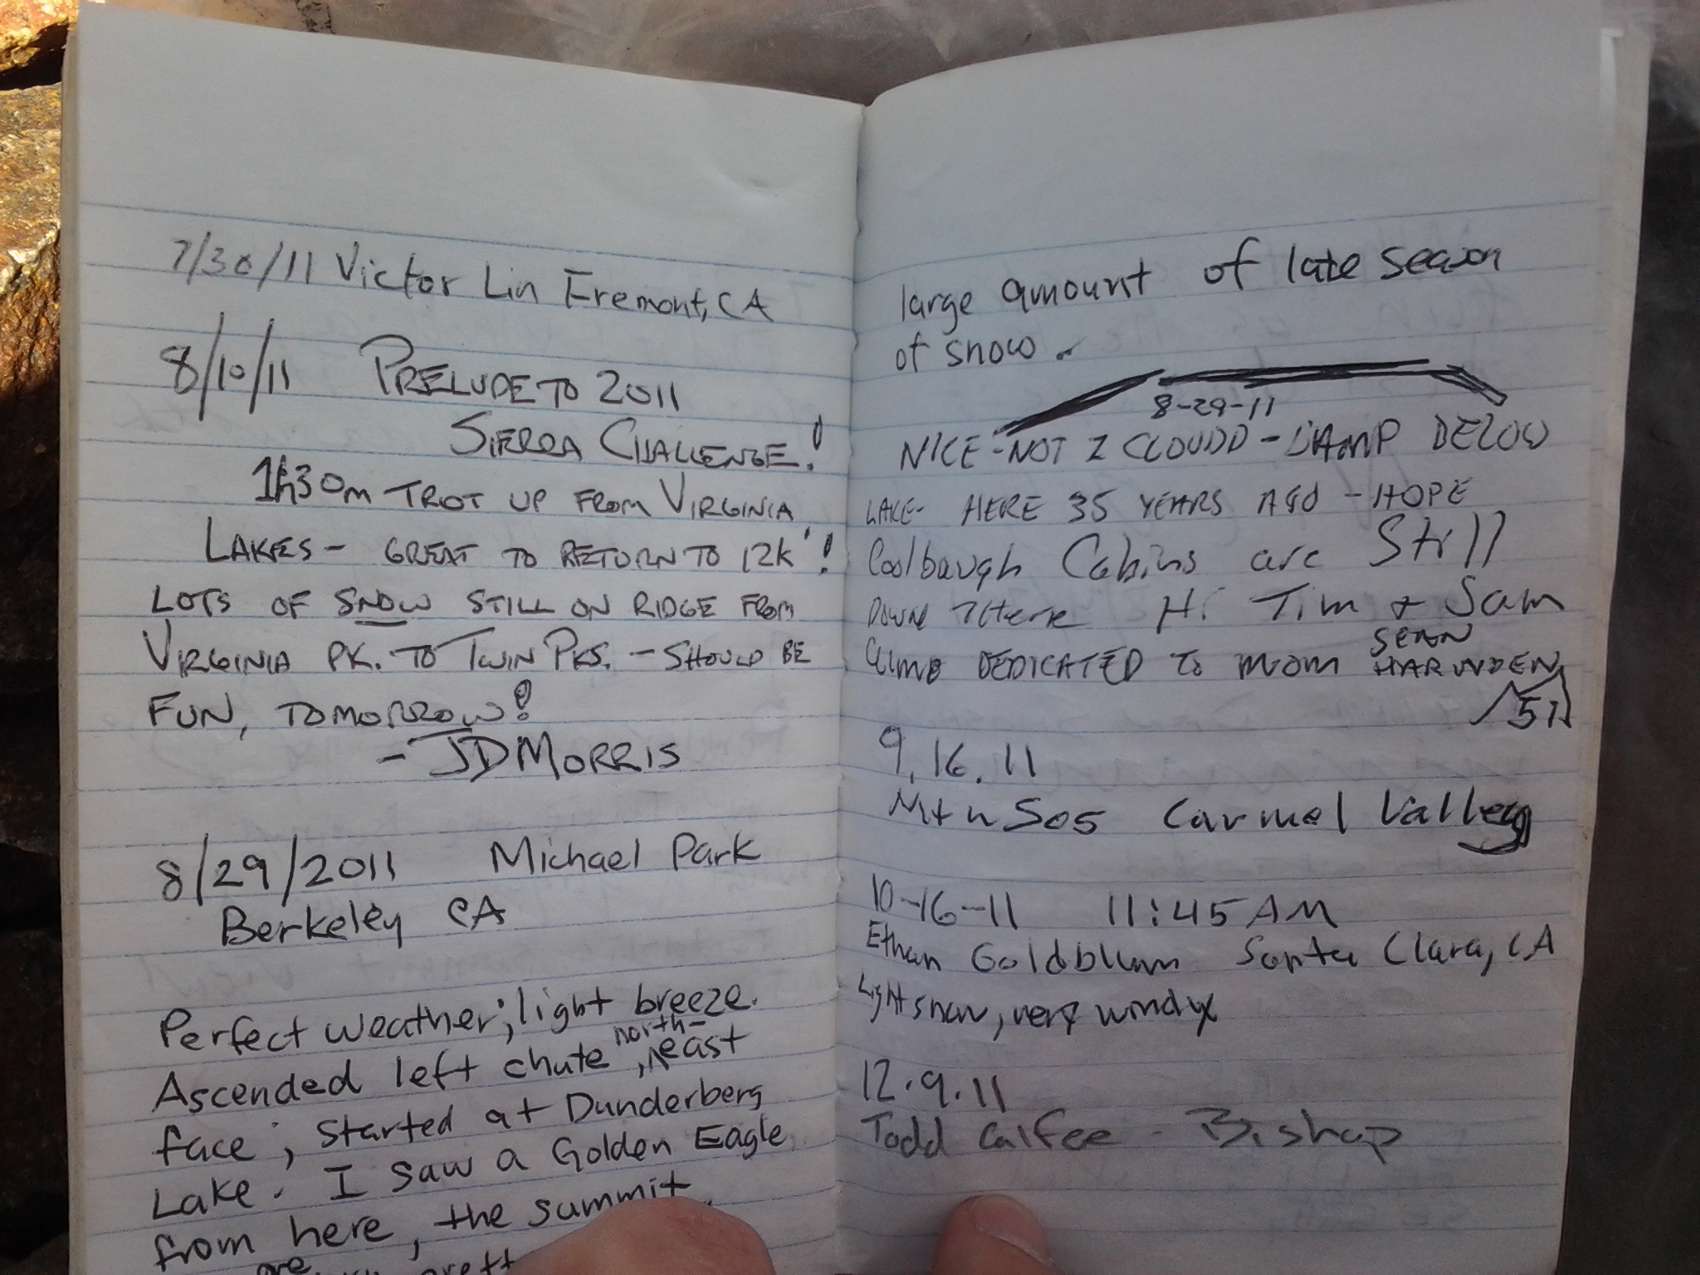 7/30/11 Victor Lin Fremont, CA
8/10/11 PRELUDE TO 2011
SIERRA CHALLENGE!
1h30m TROT UP FROM VIRGINIA
LAKES - GREAT TO RETURN TO 12K'!
LOTS OF SNOW STILL ON RIDGE FROM
VIRGINIA PK. TO TWIN PKS. - SHOULD BE
FUN, TOMORROW!
- JD MORRIS
8/29/2011 Michael Park
Berkeley CA
Perfect weather; light breeze.
Ascended left chute, north-east
face; started at Dunderberg
Lake. I saw a Golden Eagle
from here, the summit.
are
large amount of late season
of snow.
8-29-11
NICE-NOT Z CLOUDD - DAMP BELOW
LAKE- HERE 35 YEARS AGO - HOPE
Coolbaugh Cabins are Still
DOWN THERE Hi Tim & Sam
CLIMB DEDICATED TO MOM SEAN HARNDEN
51
9.16.11
Carmel Valley
10-16-11 11:45 AM
Ethan Goldblum Santa Clara, CA
Light snow, very windy
12.9.11
Todd Calfee - Bishop